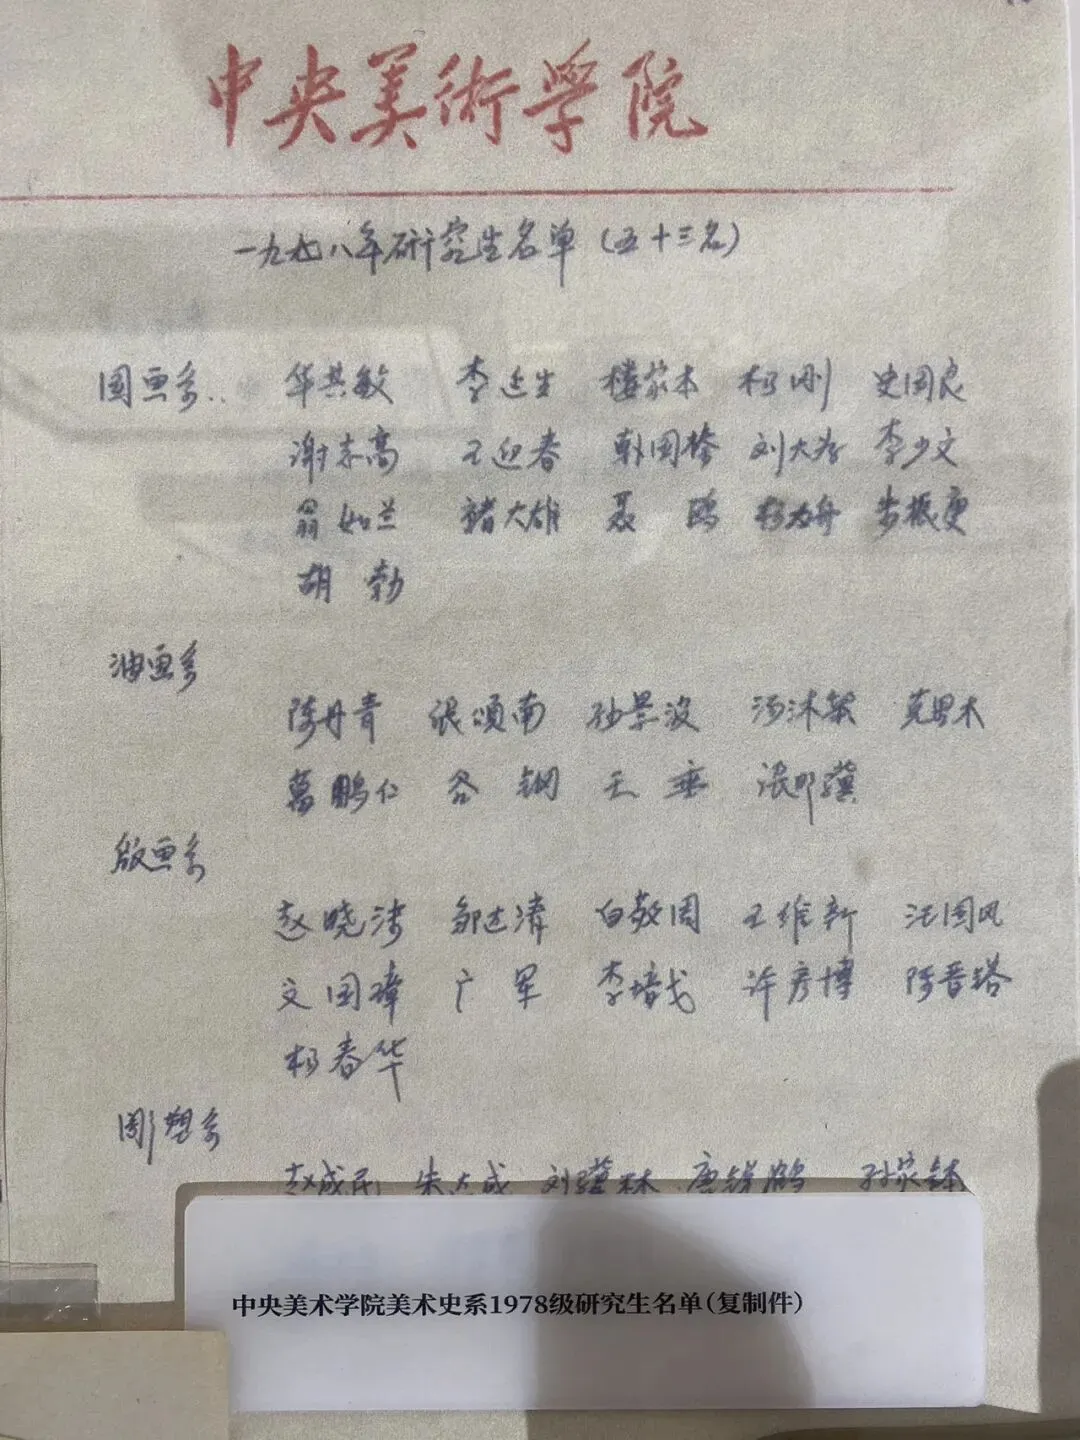 中央美術学院
一九七八年研究生名单(五十三名)
国画系.. 华其敏 李延生 楼家本 杨刚 史国良
谢志高 王迎春 韩国榛 刘大为 李少文
翁如兰 褚大雄 聂鸥 杨力舟 朱振庚
胡勃
油画系
陈丹青 张颂南 孙景波 汤沐黎 克里木
葛鹏仁 各钢 王垂 张郎骥
版画系
赵晓沫 邹达清 白敬周 王维新 汪国风
文国璋 广军 李培戈 许彦博 陈晋镕
杨春华
彫塑系
赵成民 朱大成 刘骥林 唐锐鹤 孙家钵
中央美术学院美术史系1978级研究生名单(复制件)